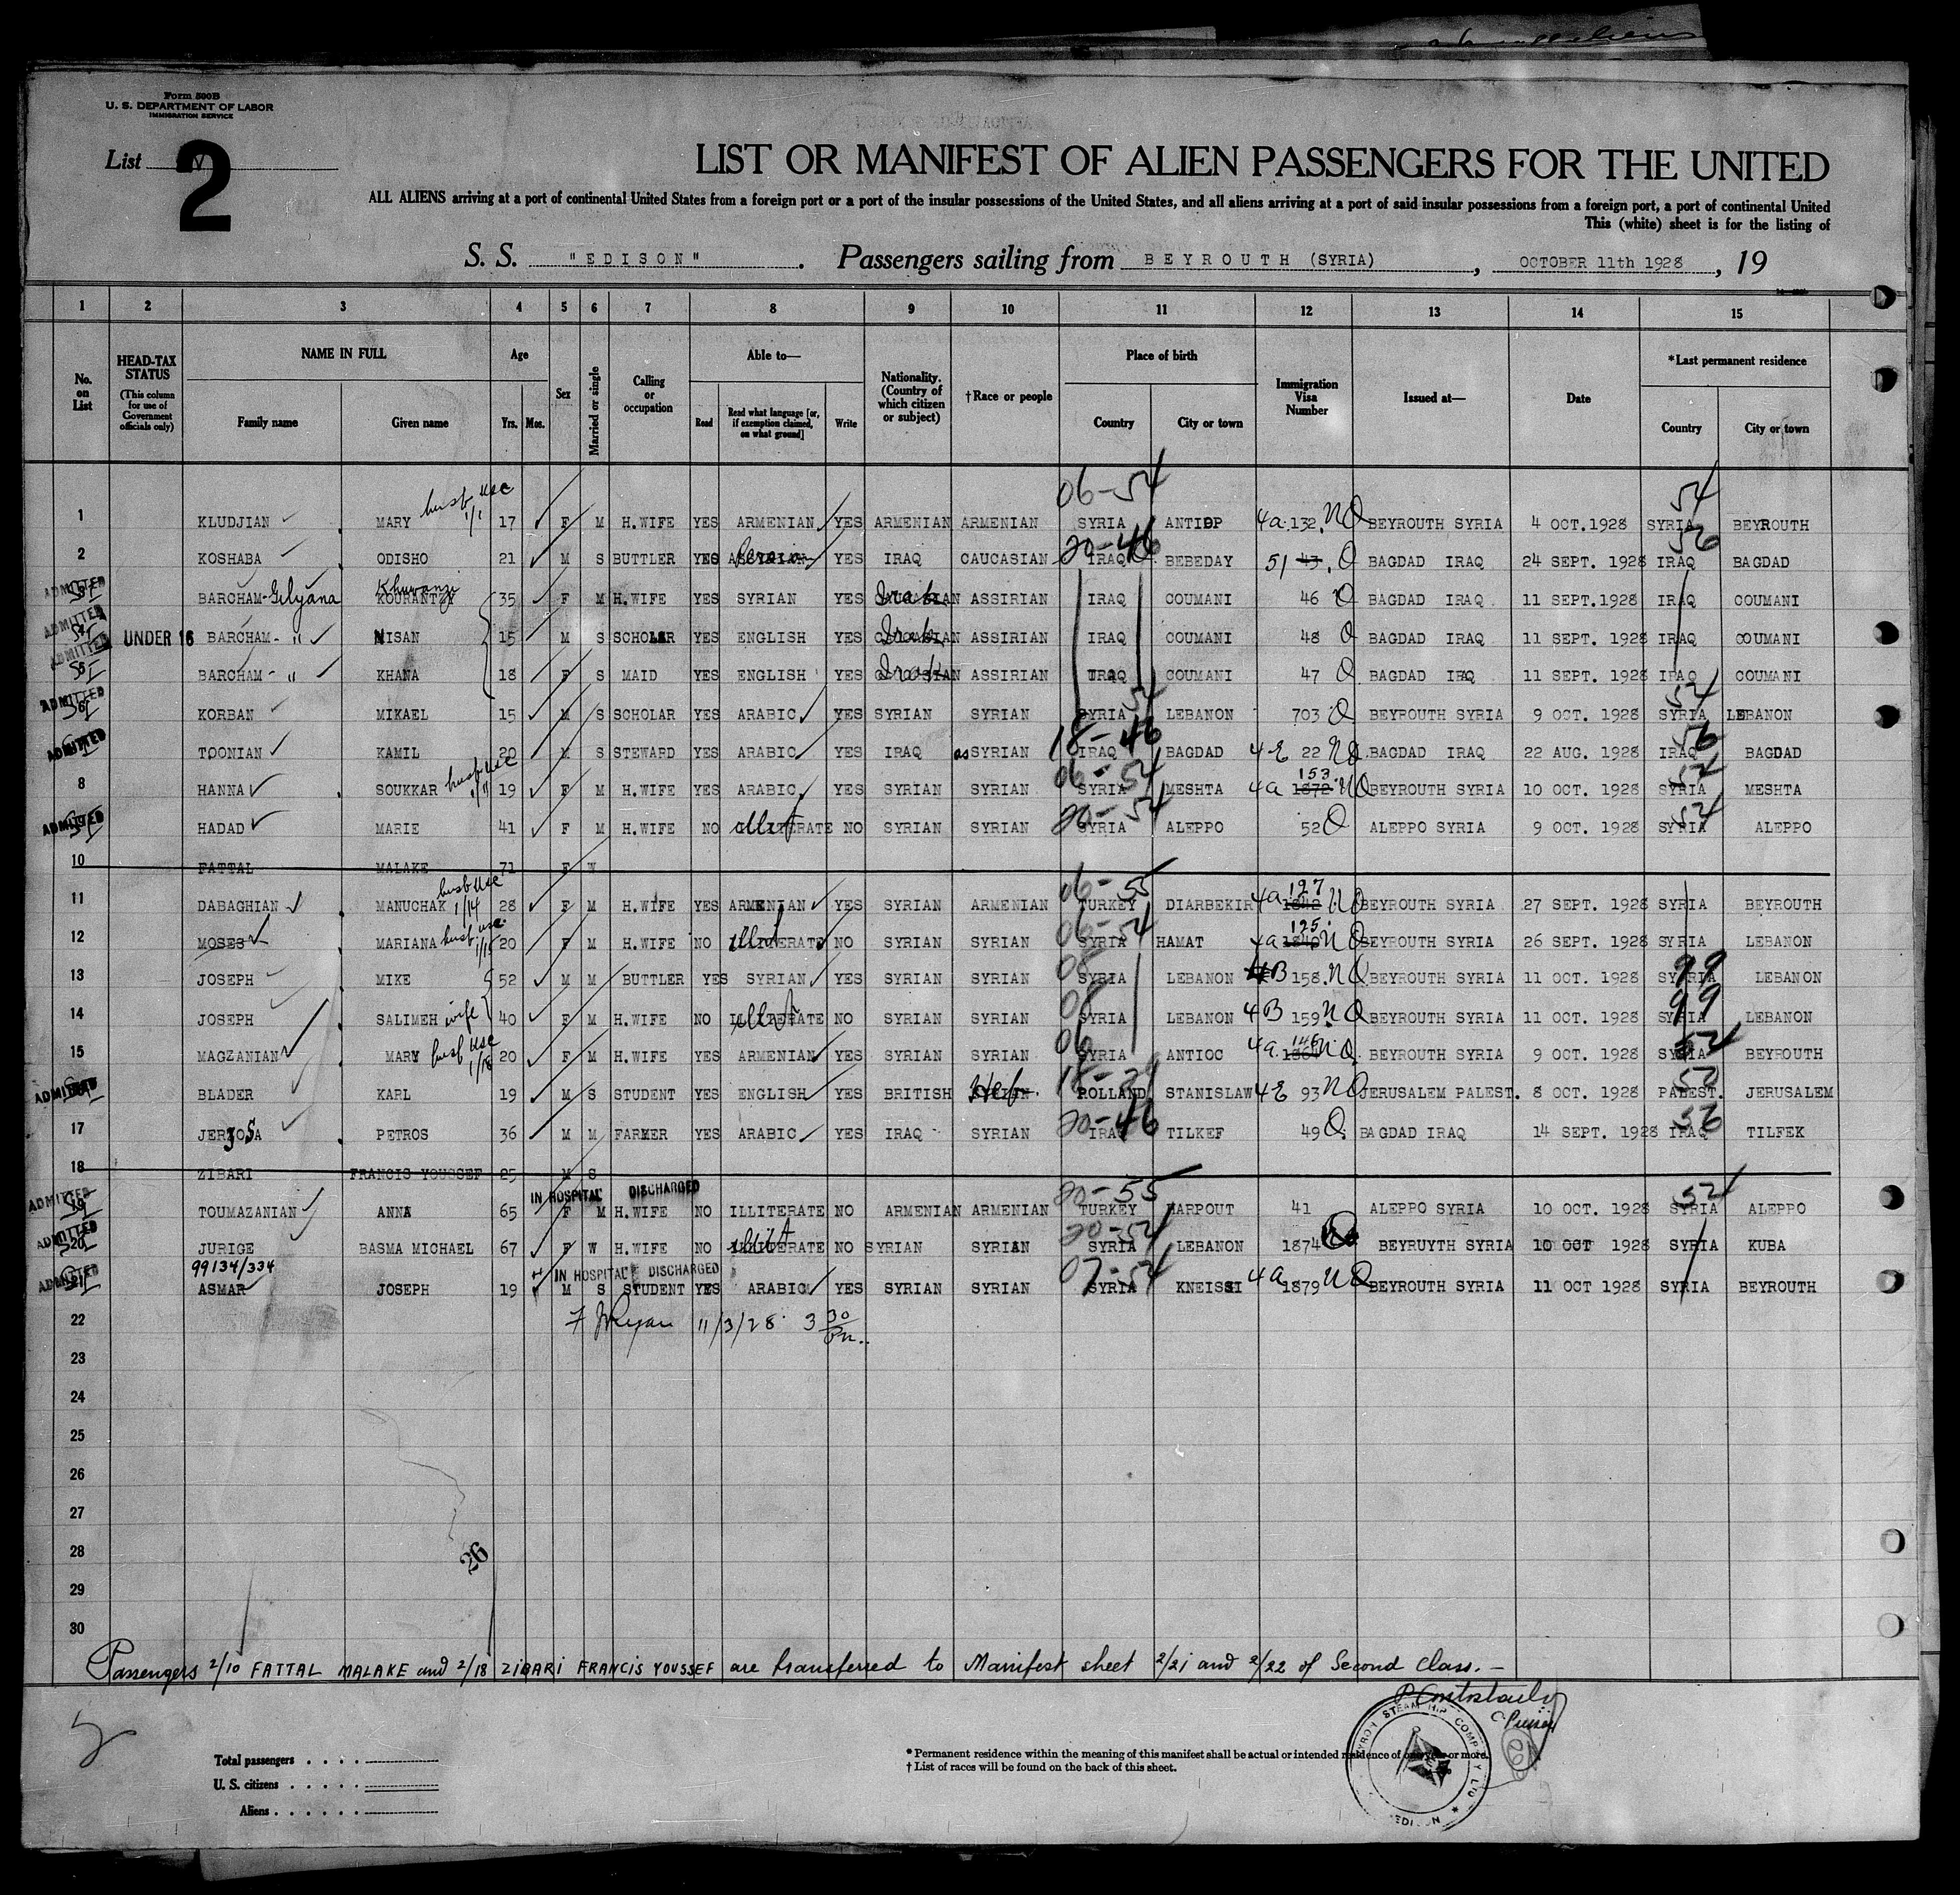 Form 500B
U. S. DEPARTMENT OF LABOR
IMMIGRATION SERVICE
List 2
LIST OR MANIFEST OF ALIEN PASSENGERS FOR THE UNITED
ALL ALIENS arriving at a port of continental United States from a foreign port or a port of the insular possessions of the United States, and all aliens arriving at a port of said insular possessions from a foreign port, a port of continental United
This (white) sheet is for the listing of
S. S. "EDISON" . Passengers sailing from BEYROUTH (SYRIA) , OCTOBER 11th 1928 , 19
1 2 3 4 5 6 7 8 9 10 11 12 13 14 15
No. on List
HEAD-TAX STATUS (This column for use of Government officials only)
NAME IN FULL Family name Given name
Age Yrs. Mos.
Sex
Married or single
Calling or occupation
Able to— Read Read what language [or, if exemption claimed, on what ground] Write
Nationality. (Country of which citizen or subject)
†Race or people
Place of birth Country City or town
Immigration Visa Number
Issued at—
Date
*Last permanent residence Country City or town
husb use 1/1 06-54 54
1 KLUDJIAN MARY 17 F M H.WIFE YES ARMENIAN YES ARMENIAN ARMENIAN SYRIA ANTIOP 4a 132 NQ BEYROUTH SYRIA 4 OCT.1928 SYRIA BEYROUTH
20-46 56
2 KOSHABA ODISHO 21 M S BUTTLER YES YES IRAQ CAUCASIAN IRAQ BEBEDAY 51 43 Q BAGDAD IRAQ 24 SEPT. 1928 IRAQ BAGDAD
ADMITTED BARCHAM-Gilyana KOURANTZY Khuvanzi 35 F M H.WIFE YES SYRIAN YES Irak ASSIRIAN IRAQ COUMANI 46 Q BAGDAD IRAQ 11 SEPT.1928 IRAQ COUMANI
ADMITTED UNDER 16 BARCHAM- " NISAN 15 M S SCHOLAR YES ENGLISH YES Irak ASSIRIAN IRAQ COUMANI 48 Q BAGDAD IRAQ 11 SEPT. 1928 IRAQ COUMANI
ADMITTED BARCHAM- " KHANA 18 F S MAID YES ENGLISH YES Irak ASSIRIAN IRAQ COUMANI 47 Q BAGDAD IRAQ 11 SEPT. 1928 IRAQ COUMANI
ADMITTED KORBAN MIKAEL 15 M S SCHOLAR YES ARABIC YES SYRIAN SYRIAN SYRIA 54 LEBANON 703 Q BEYROUTH SYRIA 9 OCT. 1928 SYRIA 54 LEBANON
ADMITTED TOONIAN KAMIL 20 M S STEWARD YES ARABIC YES IRAQ as SYRIAN 18-46 IRAQ BAGDAD 4E 22 NQ BAGDAD IRAQ 22 AUG. 1928 IRAQ 56 BAGDAD
8 HANNA SOUKKAR husb use 1/11 19 F M H.WIFE YES ARABIC YES SYRIAN SYRIAN 06-54 SYRIA MESHTA 4a 1872 153 NQ BEYROUTH SYRIA 10 OCT. 1928 SYRIA MESHTA
ADMITTED HADAD MARIE 41 F M H.WIFE NO ILLITERATE NO SYRIAN SYRIAN 20-54 SYRIA ALEPPO 52 Q ALEPPO SYRIA 9 OCT. 1928 SYRIA 54 ALEPPO
10 FATTAL MALAKE 71 F W
11 DABAGHIAN MANUCHAK husb use 1/14 28 F M H.WIFE YES ARMENIAN YES SYRIAN ARMENIAN 06-55 TURKEY DIARBEKIR 4a 127 NQ BEYROUTH SYRIA 27 SEPT. 1928 SYRIA BEYROUTH
12 MOSES MARIANA husb use 1/15 20 F M H.WIFE NO ILLITERATE NO SYRIAN SYRIAN 06-54 SYRIA HAMAT 4a 125 NQ BEYROUTH SYRIA 26 SEPT. 1928 SYRIA LEBANON
13 JOSEPH MIKE 52 M M BUTTLER YES SYRIAN YES SYRIAN SYRIAN 08 SYRIA LEBANON 4B 158 NQ BEYROUTH SYRIA 11 OCT. 1928 SYRIA 99 LEBANON
14 JOSEPH SALIMEH wife 40 F M H.WIFE NO ILLITERATE NO SYRIAN SYRIAN 08 SYRIA LEBANON 4B 159 NQ BEYROUTH SYRIA 11 OCT. 1928 SYRIA 99 LEBANON
15 MAGZANIAN MARY husb use 1/18 20 F M H.WIFE YES ARMENIAN YES SYRIAN SYRIAN 06 SYRIA ANTIOC 4a NQ BEYROUTH SYRIA 9 OCT. 1928 SYRIA 54 BEYROUTH
ADMITTED BLADER KARL 19 M S STUDENT YES ENGLISH YES BRITISH Heb. POLLAND STANISLAW 4E 93 NQ JERUSALEM PALEST. 8 OCT. 1928 PALEST. JERUSALEM
17 JERJOSA PETROS 36 M M FARMER YES ARABIC YES IRAQ SYRIAN 20-46 IRAQ TILKEF 49 Q BAGDAD IRAQ 14 SEPT. 1928 IRAQ 56 TILFEK
18 ZIBARI FRANCIS YOUSSEF 25 M S
IN HOSPITAL DISCHARGED
ADMITTED 19 TOUMAZANIAN ANNA 65 F M H.WIFE NO ILLITERATE NO ARMENIAN ARMENIAN 20-55 TURKEY HARPOUT 41 ALEPPO SYRIA 10 OCT. 1928 SYRIA 54 ALEPPO
ADMITTED 20 JURIGE BASMA MICHAEL 67 F W H.WIFE NO ILLITERATE NO SYRIAN SYRIAN 20-54 SYRIA LEBANON 1874 BEYRUYTH SYRIA 10 OCT 1928 SYRIA KUBA
99134/334 IN HOSPITAL DISCHARGED
ADMITTED 21 ASMAR JOSEPH 19 M S STUDENT YES ARABIC YES SYRIAN SYRIAN 07-54 SYRIA KNEISSI 4a 1879 NQ BEYROUTH SYRIA 11 OCT 1928 SYRIA BEYROUTH
22 Ryan 11/3/28 3 30 Pm.
23
24
25
26
27
28
26
29
30
Passengers 2/10 FATTAL MALAKE and 2/18 ZIBARI FRANCIS YOUSSEF are transferred to Manifest sheet 2/21 and 2/22 of Second Class. —
Total passengers . . . .
U. S. citizens . . . . .
Aliens . . . . . .
* Permanent residence within the meaning of this manifest shall be actual or intended residence of one year or more.
† List of races will be found on the back of this sheet.
BYRON STEAMSHIP COMPANY LTD * EDISON